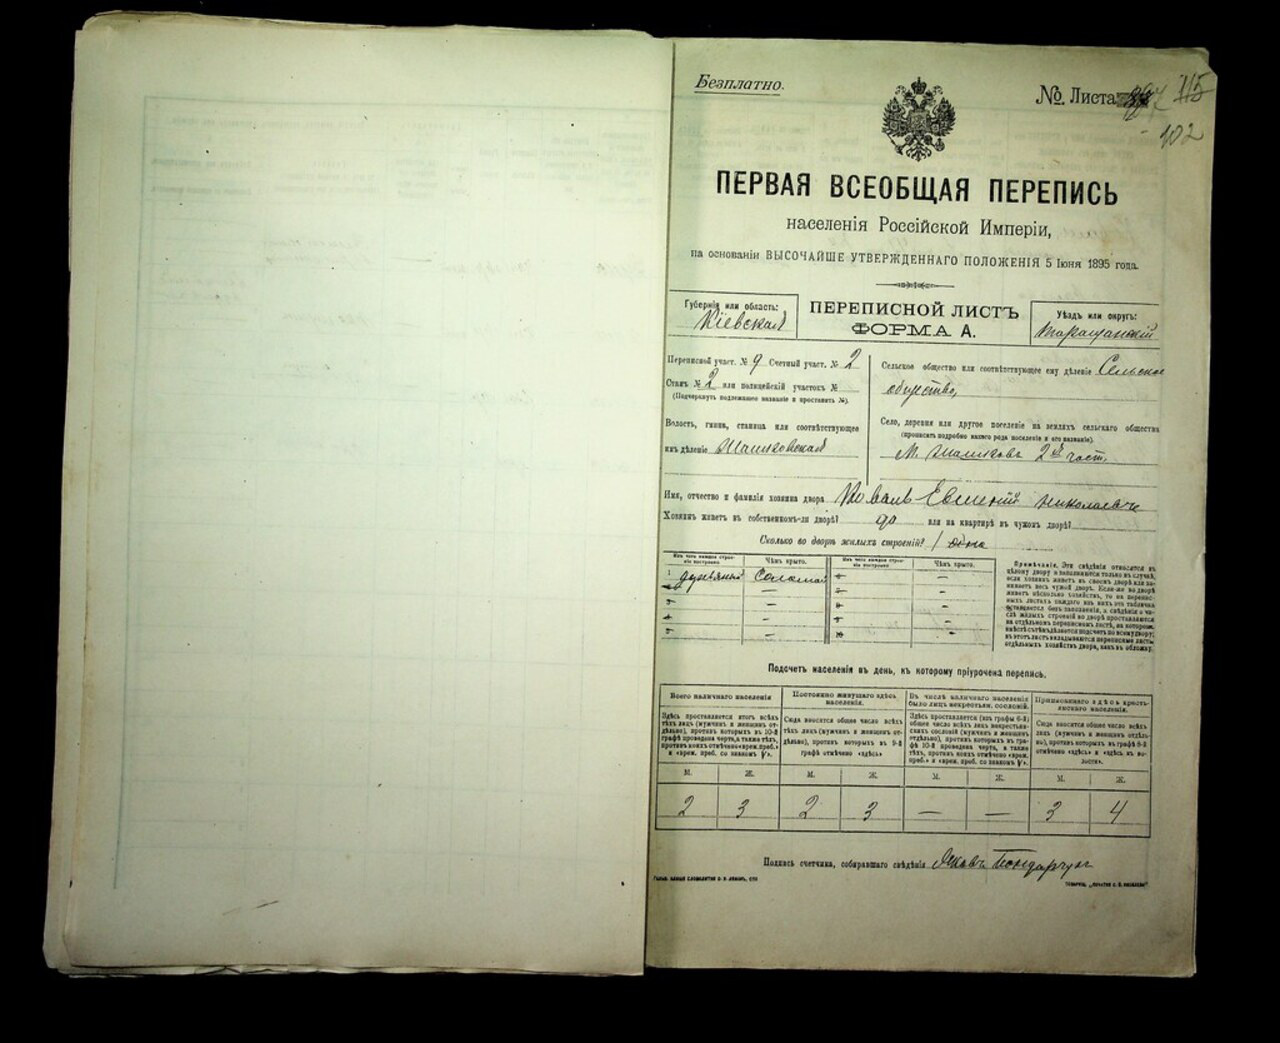 Безплатно.
№ Листа 115
102
ПЕРВАЯ ВСЕОБЩАЯ ПЕРЕПИСЬ
населенія Россійской Имперіи,
на основаніи ВЫСОЧАЙШЕ УТВЕРЖДЕННАГО ПОЛОЖЕНІЯ 5 Іюня 1895 года.
Губернія или область:
Кіевская
ПЕРЕПИСНОЙ ЛИСТЪ
ФОРМА А.
Уѣздъ или округъ:
Таращанскій
Переписной участ. № 9 Счетный участ. № 2
Станъ № 2 или полицейскій участокъ №
(Подчеркнуть подлежащее названіе и проставить №).
Волость, гмина, станица или соотвѣтствующее
имъ дѣленіе
Сельское общество или соотвѣтствующее ему дѣленіе Сельское
общество,
Село, деревня или другое поселеніе на земляхъ сельскаго общества
(прописать подробно какого рода поселеніе и его названіе).
М. 2ая част.
Имя, отчество и фамилія хозяина двора Коваль Евгеній Николаевъ
Хозяинъ живетъ въ собственномъ-ли дворѣ? да или на квартирѣ въ чужомъ дворѣ?
Сколько во дворѣ жилыхъ строеній? 1 одна
Изъ чего каждое строеніе построено
Чѣмъ крыто.
Изъ чего каждое строеніе построено
Чѣмъ крыто.
1 Соломой
Примѣчаніе. Эти свѣдѣнія относятся къ
цѣлому двору и заполняются только въ случаѣ,
если хозяинъ живетъ въ своемъ дворѣ или занимаетъ
весь чужой дворъ. Если-же во дворѣ
живетъ нѣсколько хозяйствъ, то на переписныхъ
листахъ каждаго изъ нихъ эта табличка
оставляется безъ заполненія, а свѣдѣнія о числѣ
жилыхъ строеній во дворѣ проставляются
на отдѣльномъ переписномъ листѣ, на которомъ
Подсчетъ населенія въ день, къ которому пріурочена перепись.
Всего наличнаго населенія
Постоянно живущаго здѣсь населенія.
Въ числѣ наличнаго населенія было лицъ некрестьян. сословій.
Приписаннаго здѣсь крестьянскаго населенія.
Здѣсь проставляется итогъ всѣхъ
тѣхъ лицъ (мужчинъ и женщинъ отдѣльно),
противъ которыхъ въ 10-й
графѣ проведена черта, а также тѣхъ,
противъ коихъ отмѣчено «врем. преб.»
Сюда вносится общее число всѣхъ
тѣхъ лицъ (мужчинъ и женщинъ отдѣльно),
противъ которыхъ въ 9-й
графѣ отмѣчено «здѣсь»
Здѣсь проставляется (изъ графы 6-й)
общее число всѣхъ лицъ некрестьянскихъ
сословій (мужчинъ и женщинъ
отдѣльно), противъ которыхъ въ графѣ
10-й проведена черта, а также
тѣхъ, противъ коихъ отмѣчено «врем.
преб.»
Сюда вносится общее число всѣхъ
лицъ (мужчинъ и женщинъ отдѣльно),
противъ которыхъ въ графѣ 8-й
отмѣчено «здѣсь» и «здѣсь въ волости».
М. Ж. М. Ж. М. Ж. М. Ж.
2 3 2 3 — — 3 4
Подпись счетчика, собиравшаго свѣдѣнія Яковъ Бондарчукъ